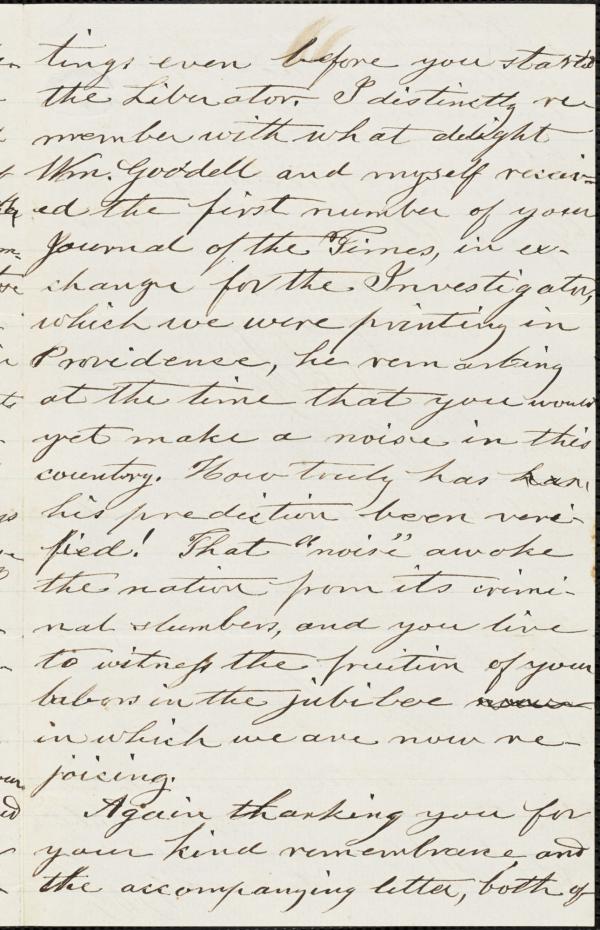 tings even before you started
the Liberator. I distinctly re-
member with what delight
Wm. Goodell and myself receiv-
ed the first number of your
Journal of the Times, in ex-
change for the Investigator,
which we were printing in
Providense, he remarking
at the time that you would
yet make a noise in this
country. How truly has
his prediction been veri-
fied! That "noise" awoke
the nation from its crimi-
nal slumbers, and you live
to witness the fruition of your
labors in the jubilee now
in which we are now re-
joising.
Again thanking you for
your kind remembrance, and
the accompanying letter, both of